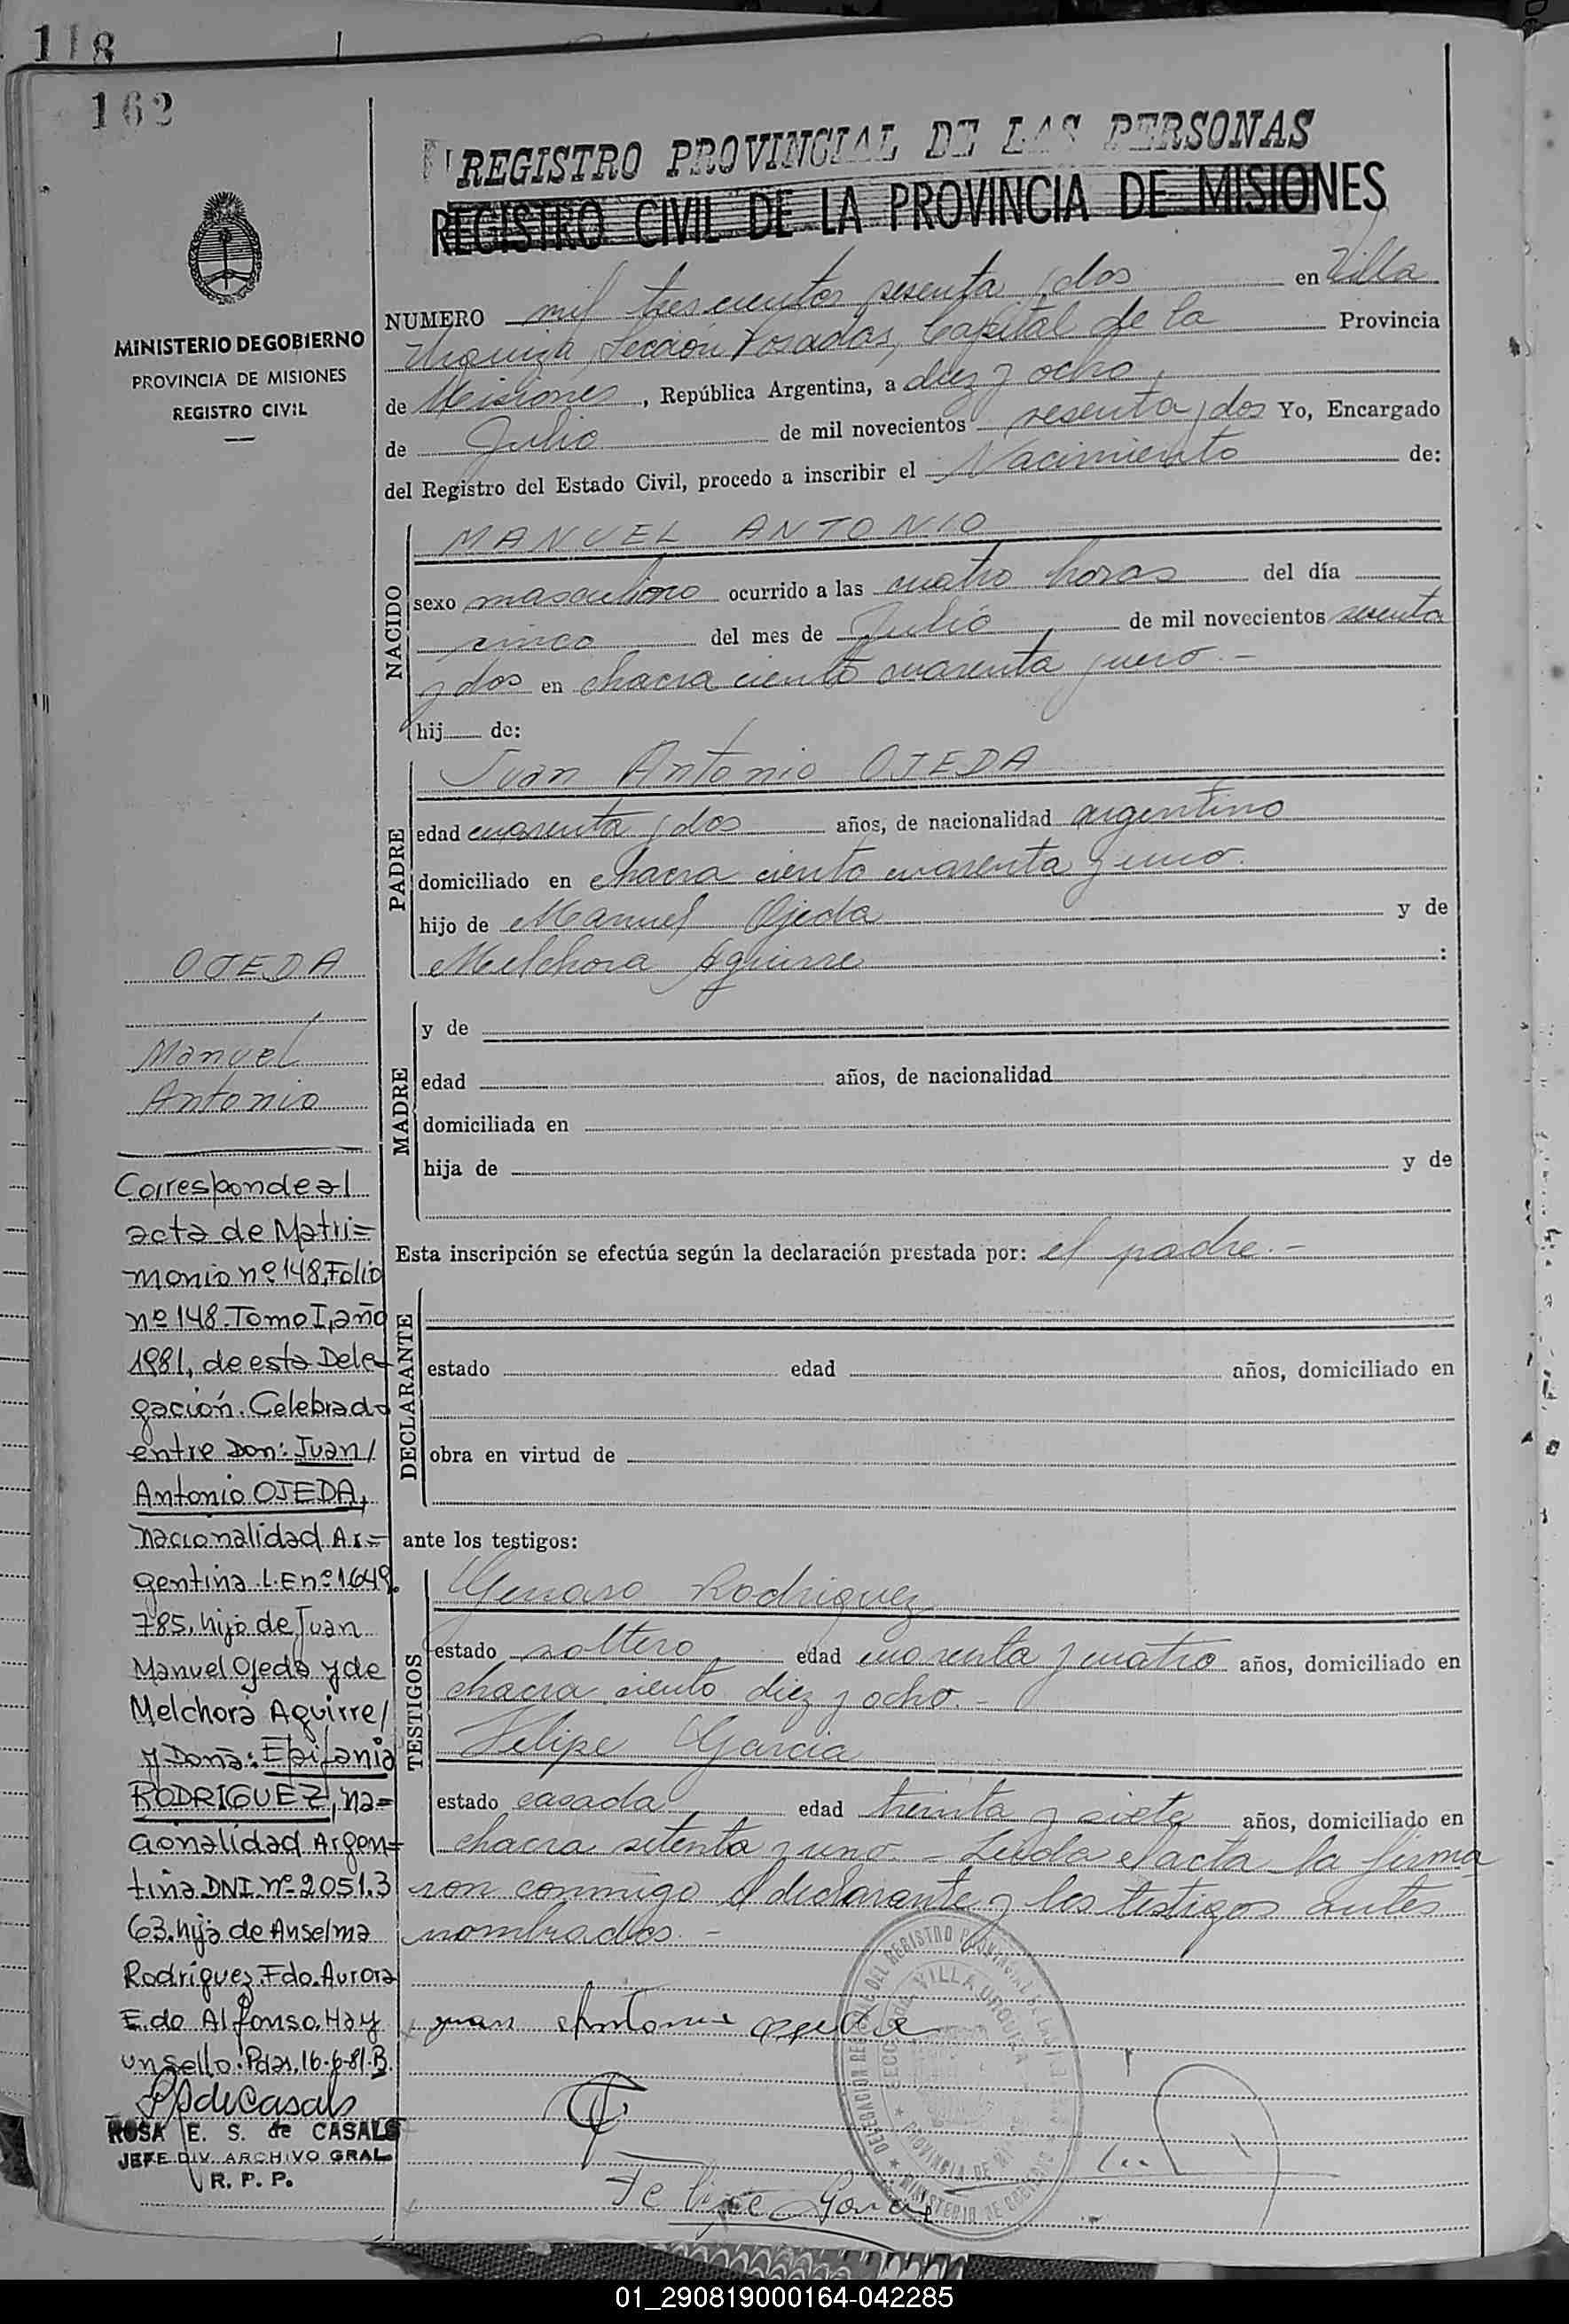 118
162
REGISTRO PROVINCIAL DE LAS PERSONAS
REGISTRO CIVIL DE LA PROVINCIA DE MISIONES
MINISTERIO DE GOBIERNO
PROVINCIA DE MISIONES
REGISTRO CIVIL
NUMERO mil trescientos sesenta y dos en Villa
Urquiza, Sección Posadas, Capital de la Provincia
de Misiones, República Argentina, a diez y ocho
de Julio de mil novecientos sesenta y dos Yo, Encargado
del Registro del Estado Civil, procedo a inscribir el Nacimiento de:
NACIDO
MANUEL ANTONIO
sexo masculino ocurrido a las cuatro horas del día
cinco del mes de Julio de mil novecientos sesenta
y dos en chacra ciento cuarenta y uno.-
hij de:
PADRE
Juan Antonio OJEDA
edad cuarenta y dos años, de nacionalidad argentino
domiciliado en chacra ciento cuarenta y uno.
hijo de Manuel Ojeda y de
Melchora Aguirre :
MADRE
y de
edad años, de nacionalidad
domiciliada en
hija de y de
Esta inscripción se efectúa según la declaración prestada por: el padre.-
DECLARANTE
estado edad años, domiciliado en
obra en virtud de
ante los testigos:
TESTIGOS
Genaro Rodriguez
estado soltero edad cuarenta y cuatro años, domiciliado en
chacra ciento diez y ocho.-
Felipe Garcia
estado casado edad treinta y siete años, domiciliado en
chacra setenta y uno.- Leida el acta la firma
ron conmigo el declarante y los testigos antes
nombrados.-
juan Antonio ojeda
Felipe Garcia
OJEDA
Manuel
Antonio
Corresponde al
acta de Matri=
monio nº 148, Folio
nº 148. Tomo I, año
1981, de esta Dele-
gación. Celebrado
entre Don: Juan/
Antonio OJEDA,
nacionalidad Ar=
gentina L.E nº 1649.
785, hijo de Juan
Manuel Ojeda y de
Melchora Aguirre/
y Dona: Epifania
RODRIGUEZ, na=
cionalidad Argen=
tina DNI. Nº 2051.3
63. hija de Anselma
Rodriguez. Fdo. Aurora
E. do Alfonso. Hay
un sello. Pdas. 16-6-81. B.
ROSA E. S. de CASALS
JEFE DIV. ARCHIVO GRAL.
R. P. P.
VILLA URQUIZA
PROVINCIA DE
MINISTERIO DE GOBIERNO
01_290819000164-042285